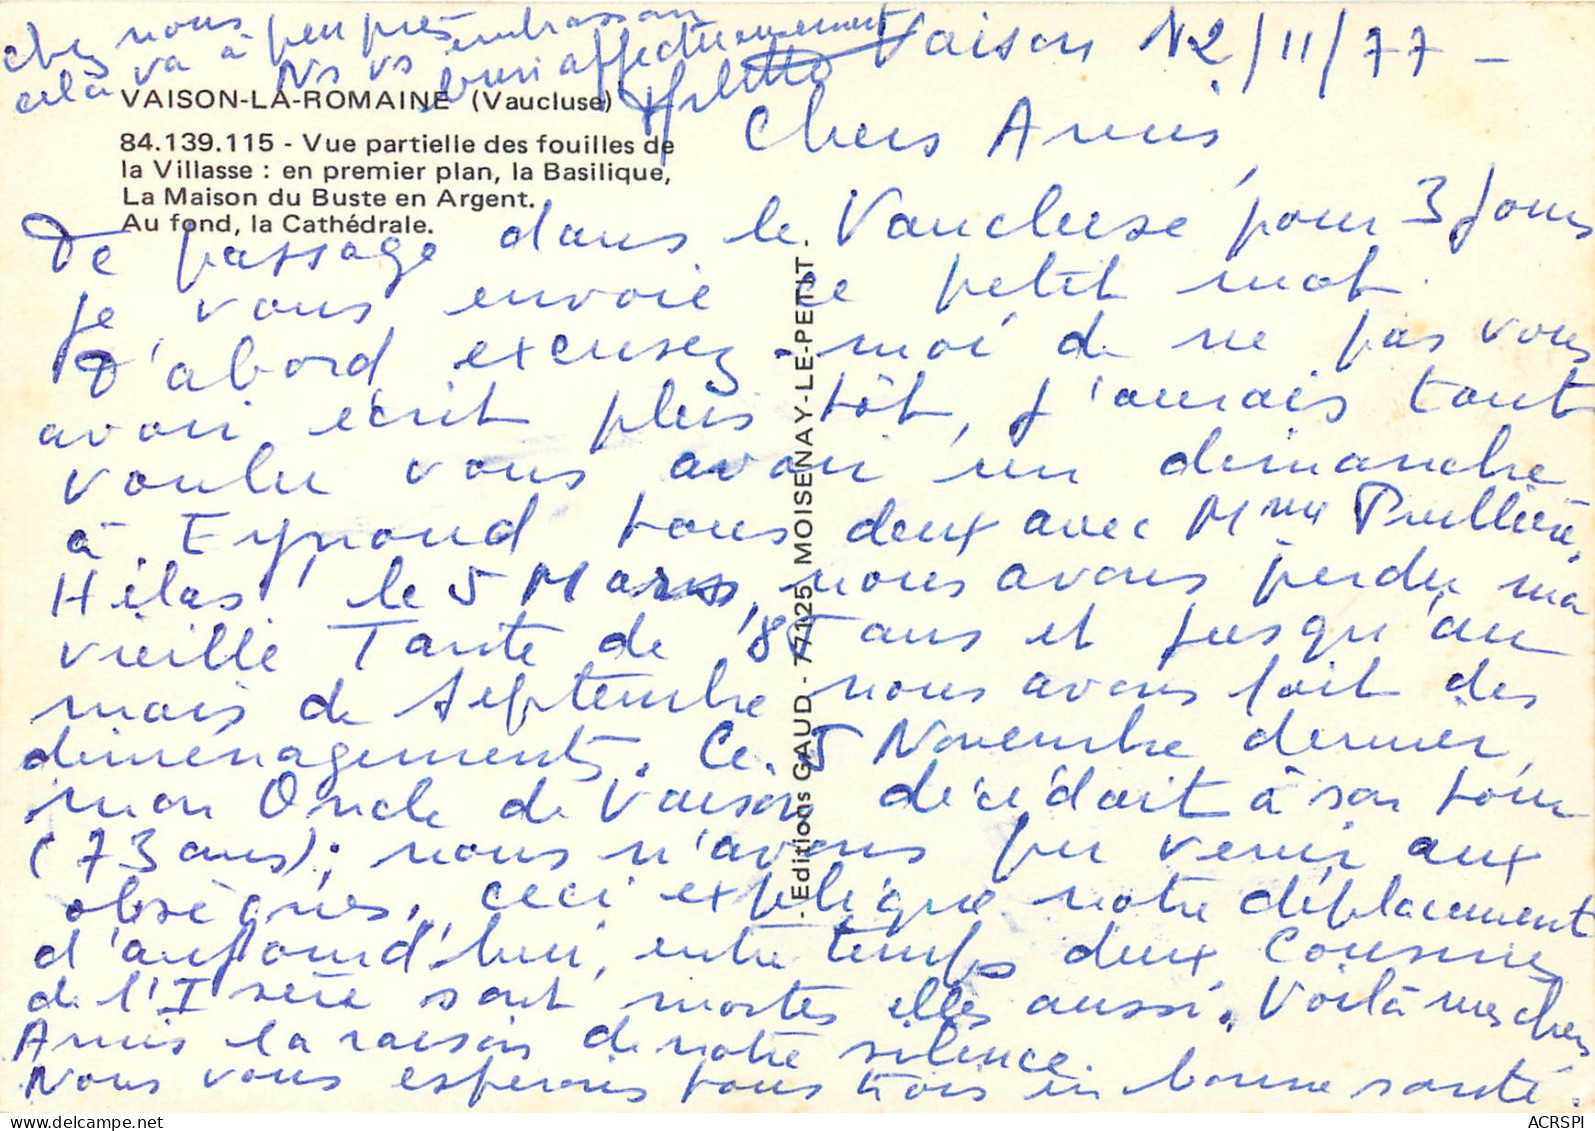 Vaison 12/11/77 -
Chers Amis,
VAISON-LA-ROMAINE (Vaucluse)
84.139.115 - Vue partielle des fouilles de
la Villasse : en premier plan, la Basilique,
La Maison du Buste en Argent.
Au fond, la Cathédrale.
De passage dans le Vaucluse pour 3 jours
je vous envoie ce petit mot.
D'abord excusez-moi de ne pas vous
avoir écrit plus tôt, j'aurais tant
voulu vous avoir un dimanche
à Eyrond tous deux avec Mme
Hélas, le 5 Mars, nous avons perdu ma
vieille Tante de 85 ans et jusqu'au
mois de Septembre nous avons fait des
déménagements. Ce 5 Novembre dernier,
mon Oncle de Vaison décédait à son tour
(73 ans); nous n'avons pu venir aux
obsèques, ceci explique notre déplacement
d'aujourd'hui, entre temps deux Cousines
de l'Isère sont mortes elles aussi. Voilà mes chers
Amis la raison de notre silence.
Nous vous espérons tous trois en bonne santé.
Chez nous
cela va à peu près
Ns vs embrassons
bien affectueusement
- Editions GAUD - 77125 MOISENAY-LE-PETIT -
ACRSPI